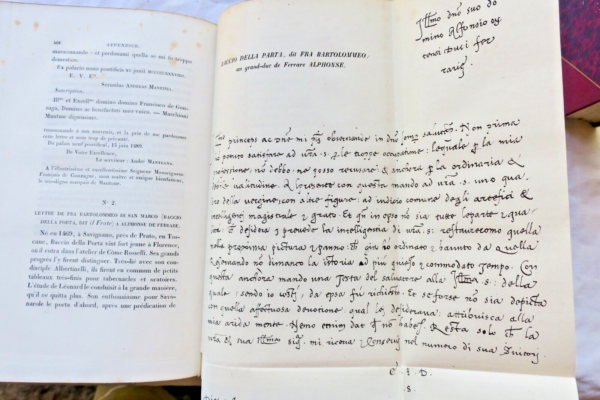 APPENDICE.
raccomando: et perdonami quella se mi fo troppo
domestico.
Ex palacio
E. V. Ex.
Servulus ANDREAS MANTINIA.
Suscription.
domino domino Francisco de Gon-
zaga, Domino ac benefactori meo unico. — Marchioni
Mantue dignissimo.
recommande à son souvenir, et la prie de me pardonner
cette lettre si sans trop de privauté.
Du palais neuf pontifical, 15 juin 1489.
De Votre Excellence,
Le serviteur : André MANTEGNA.
A l'illustrissime et excellentissime Seigneur Monseigneur
François de Gonzague, mon maître et unique bienfaiteur,
le très-digne marquis de Mantoue.
N° 2.
LETTRE DE FRA BARTOLOMMEO DI SAN MARCO (BACCIO
DELLA PORTA, DIT il Frate) A ALPHONSE DE FERRARE.
Né en 1469, à Savignano, près de Prato, en Tos-
cane, Baccio della Porta vint fort jeune à Florence,
où il entra dans l'atelier de Côme Roselli. Ses grands
progrès l'y firent distinguer. Très-lié avec son con-
disciple Albertinelli, ils firent en commun de petits
tableaux très-finis pour tabernacles et oratoires.
L'étude de Léonard le conduisit à la grande manière,
qu'il ne quitta plus. Son enthousiasme pour Savo-
narole le porta d'abord, après une prédication de
BACCIO DELLA PARTA, dit FRA BARTOLOMMEO,
au grand-duc de Ferrare ALPHONSE.
Illmo dno suo do
mino Alfonso es
tensi Duci fer
rarie
princeps ac dne mi observantie in dno salutem. Non prima
ho possuto satisfare ad p le troppe occupatione: lequale p la mia
professione, no debbo, ne posso recusare: & anchora p la ordinaria &
valitudine. & al presente con questa mando ad s. uno qua
dro della vergine con altre figure: ad iudicio comune degli artefici &
intelligenti magistrale & grato. Et in epso no sia tutte le parte & qua
desidera & prevede la intelligentia di s: restaureremo quella
nella proxima pictura & panno: gia ho ordinato & havuto da quella
& quando no dimancho la istoria ad piu quieto & commodato tempo. Con
questa anchora mando una Testa del salvatore alla Illma s: della
quale: sendo io da epsa fui richiesto. Et se forse no sia depicta
con quella affectuosa devotione qual lei desiderava: attribuisca alla
mia arida mente. Nemo etenim dat no habet. Resta solo la
& sua Illma mi riceva & conservi nel numero di sua
D
.S.